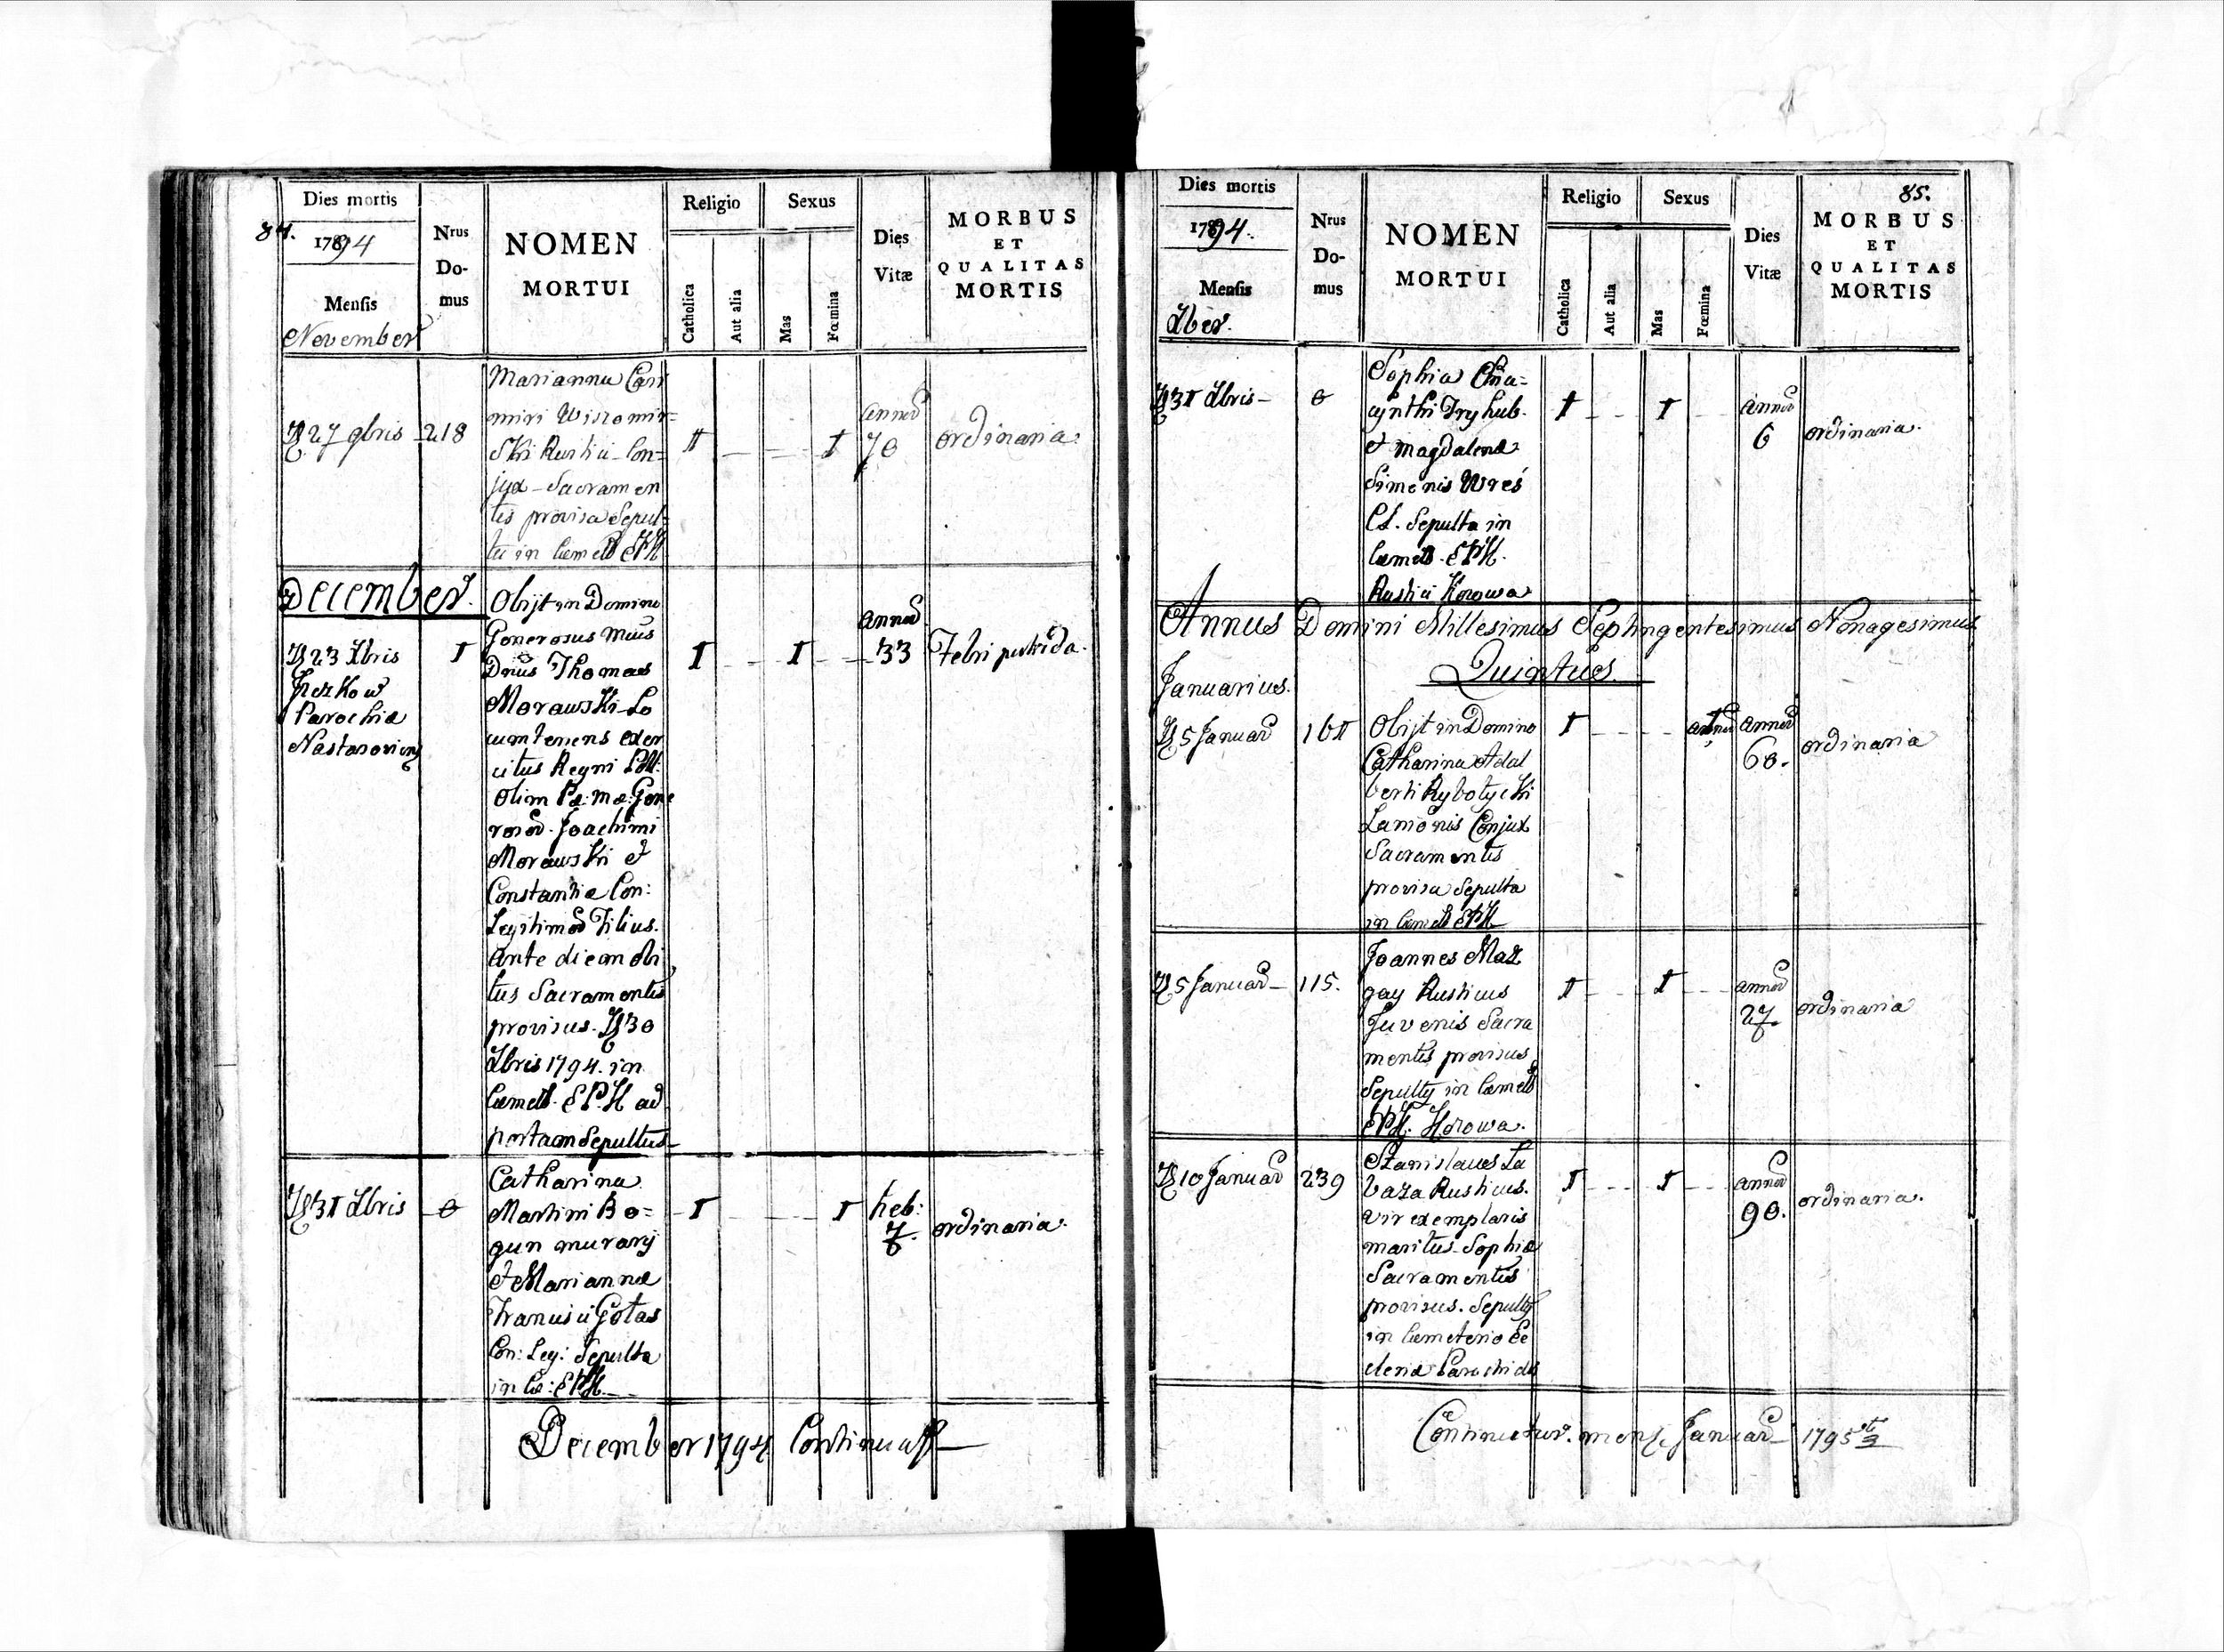 84.
Dies mortis
1794
Mensis
November
Nrus
Do-
mus
NOMEN
MORTUI
Religio
Catholica
Aut alia
Sexus
Mas
Fœmina
Dies
Vitæ
MORBUS
ET
QUALITAS
MORTIS
27 9bris
218
Marianna Casi
miri Wisromir=
ski Rustici Con=
jux Sacramen
tis provisa Sepul=
ta in Cæmett EPH
I
I
Annor
70
ordinaria.
December.
23 Xbris
Jezkow
Parochia
Nastasoviens
I
Obijt in Domino
Generosus Mcus
Dnus Thomas
Morawski Lo
cumtenens exer
citus Regni Poll:
Olim Pæ: mæ: Gene
rosor. Joachimi
Morawski et
Constantiæ Con:
Legitimor Filius.
Ante diem obi
tus Sacramentis
provisus. 30
Xbris 1794. in
Cæmett. E.P.H ad
portam Sepultus
I
I
Annor
33
Febri putrida.
31 Xbris
0
Catharina
Martini Bo=
gun murarij
et Mariannæ
Francisci Gotas
Con: Leg: Sepulta
in Cæ: EPH.
I
I
heb:
7.
ordinaria.
December 1794 Continuatt
85.
Dies mortis
1794.
Mensis
Xber.
Nrus
Do-
mus
NOMEN
MORTUI
Religio
Catholica
Aut alia
Sexus
Mas
Fœmina
Dies
Vitæ
MORBUS
ET
QUALITAS
MORTIS
31 Xbris
0
Sophia Hya=
cynthi Tryhub.
et Magdalenæ
Simonis Wreś
CL. Sepulta in
Cæmett. EPH.
Rustici Horowa
I
I
Annor
6
ordinaria.
Annus Domini Millesimus Septingentesimus Nonagesimus
Quintus.
Januarius.
5 Januar
161
Obijt in Domino
Catharina Adal
berti Rybotycki
Lanionis Conjux
Sacramentis
provisa Sepulta
in Cæmett EPH
I
I
Annor
60.
ordinaria
5 Januar
115.
Joannes Maz
gay Rusticus
Juvenis Sacra
mentis provisus
Sepultus in Cæmett
EPH. Horowa.
I
I
Annor
27.
ordinaria
10 Januar
239
Stanislaus La
baza Rusticus.
Vir exemplaris
maritus Sophiæ
Sacramentis
provisus. Sepultus
in Cæmeterio Ec
clesiæ Parochialis
I
I
Annor
90.
ordinaria.
Continuatur. mense Januar 1795